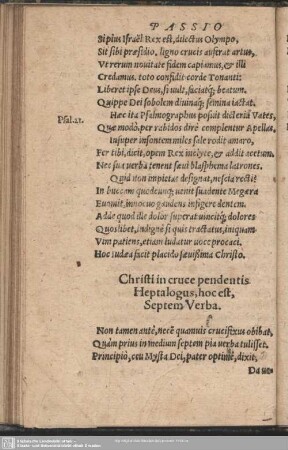 PASSIO
Si pius Israël Rex est, dilectus Olympo,
Sit sibi præsidio, ligno crucis auferat artus,
Vt rerum nouitate fidem capiamus, & illi
Credamus. toto confidit corde Tonanti:
Liberet ipse Deus, si vult, faciatq; beatum.
Quippe Dei sobolem diuinaq; semina iactat.
Hæc ita Psalmographus posuit dicteria Vates,
Psal. 21.
Quæ modò per rabidos dirè complentur Apellas.
Insuper insontem miles sale rodit amaro,
Fer tibi, dicit, opem Rex inclyte, & addit acetum.
Nec sua verba tenent sæui blasphema latrones.
Quid non impietas designat, nescia recti?
In buccam quodcunq; uenit suadente Megera
Euomit, innocuo gaudens infigere dentem.
Adde quod ille dolor superat uincitq; dolores
Quoslibet, indignè si quis tractatus, iniquam
Vim patiens, etiam ludatur uoce procaci.
Hoc iudæa facit placido sæuissima Christo.
Christi in cruce pendentis
Heptalogus, hoc est,
Septem Verba.
Non tamen antè, necē quamuis crucifixus obibat,
Quàm prius in medium septem pia verba tulisset.
Principiò, ceu Mysta Dei, pater optimè, dixit,
Da